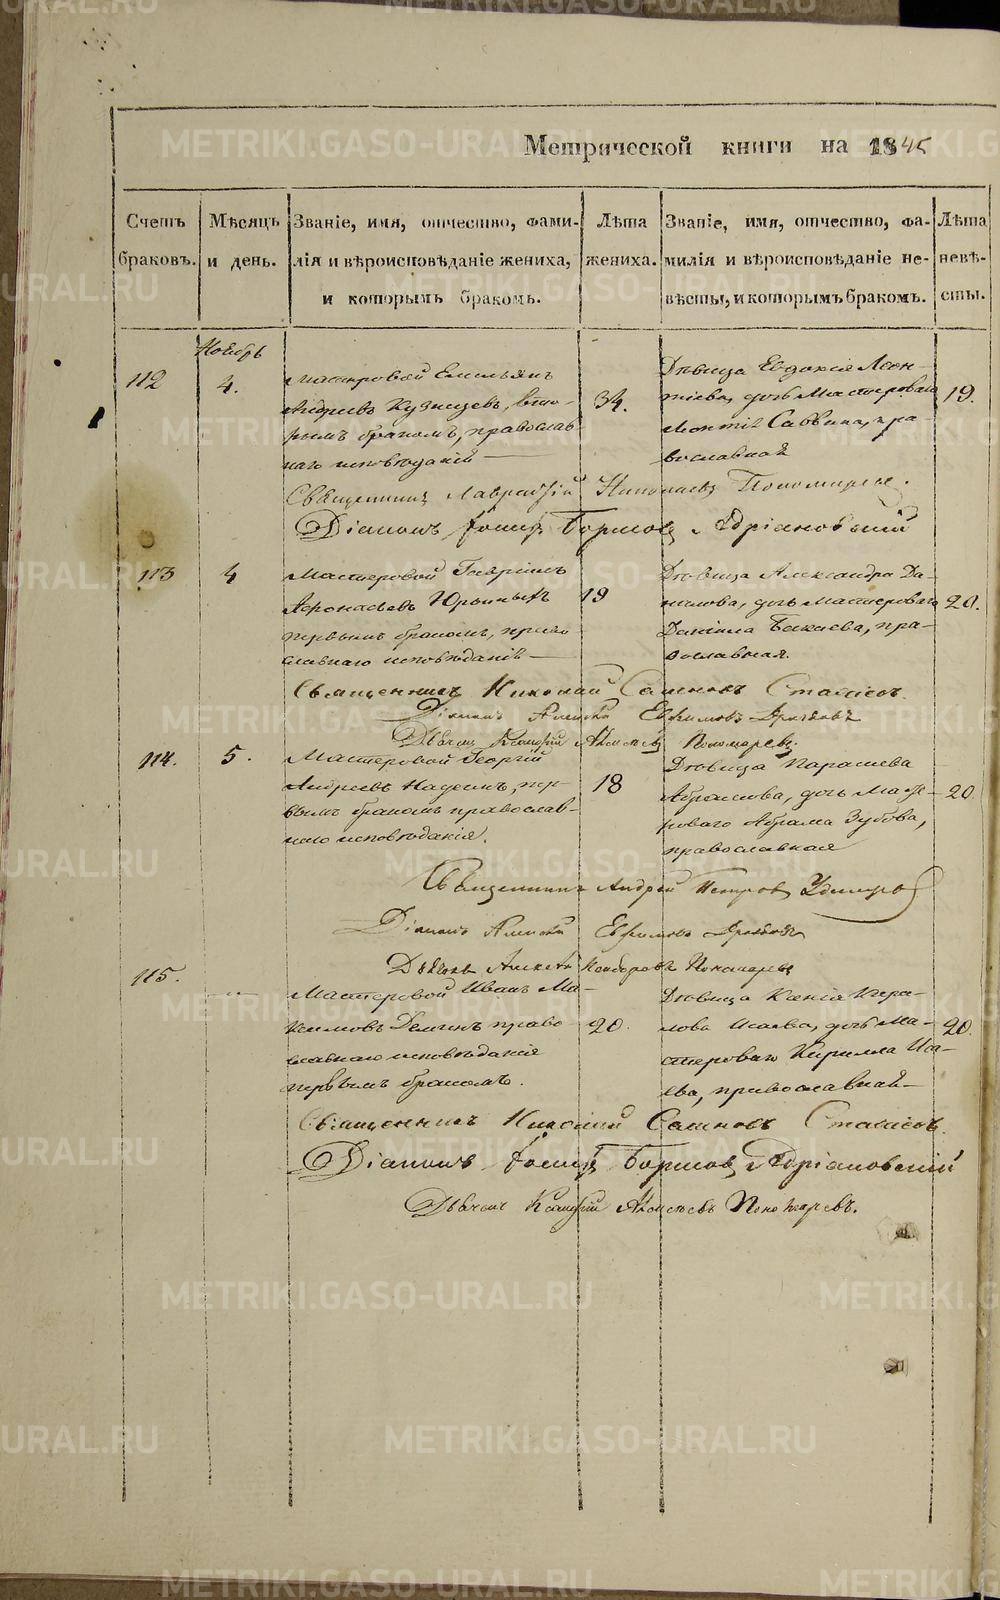 Метрической книги на 1845
Счетъ браковъ.
Мѣсяцъ и день.
Званіе, имя, отчество, фами-
лія и вѣроисповѣданіе жениха,
и которымъ бракомъ.
Лѣта жениха.
Званіе, имя, отчество, фа-
милія и вѣроисповѣданіе не-
вѣсты, и которымъ бракомъ.
Лѣта невѣ-
сты.
Ноябрь
112
4.
Мастеровой Емельянъ
Андреевъ Кузнецовъ, вто-
рымъ бракомъ, православ
наго исповѣданія
34.
Дѣвица Евдокія Леон-
тіева, дочь Мастероваго
Леонтія Саввина, пра-
вославной
19.
Священникъ Лаврентій Николаевъ Пономаревъ.
Діаконъ Іосифъ Борисовъ Адріановскій
113
4
Мастеровой Гавріилъ
Афонасьевъ Юрьиныхъ
первымъ бракомъ, право
славнаго исповѣданія
19
Дѣвица Александра Да-
нилова, дочь Мастероваго
Даніила Бакаева, пра-
вославная.
20.
Священникъ Николай Самсновъ
Діаконъ Алексѣй Евфимовъ
Дьячекъ Алексѣевъ Пономаревъ.
114.
5.
Мастеровой Георгій
Андреевъ пер-
вымъ бракомъ православ-
наго исповѣданія.
18
Дѣвица Парасева
Абрамова, дочь Масте-
роваго Абрама Зубова,
православная
20
Священникъ Андрей Петровъ Удинцовъ
Діаконъ Алексѣй Евфимовъ
Дьячекъ Алексѣй Пономаревъ
115.
"
Мастеровой Иванъ Ма-
ксимовъ право-
славнаго исповѣданія
первымъ бракомъ.
20.
Дѣвица Ксенія Кири-
лова Исаева, дочь Ма-
стероваго Кирилла Иса-
ева, православной
20.
Священникъ Николай
Діаконъ Іосифъ Борисовъ Адріановскій
Дьячекъ Алексѣевъ Пономаревъ.
METRIKI.GASO-URAL.RU